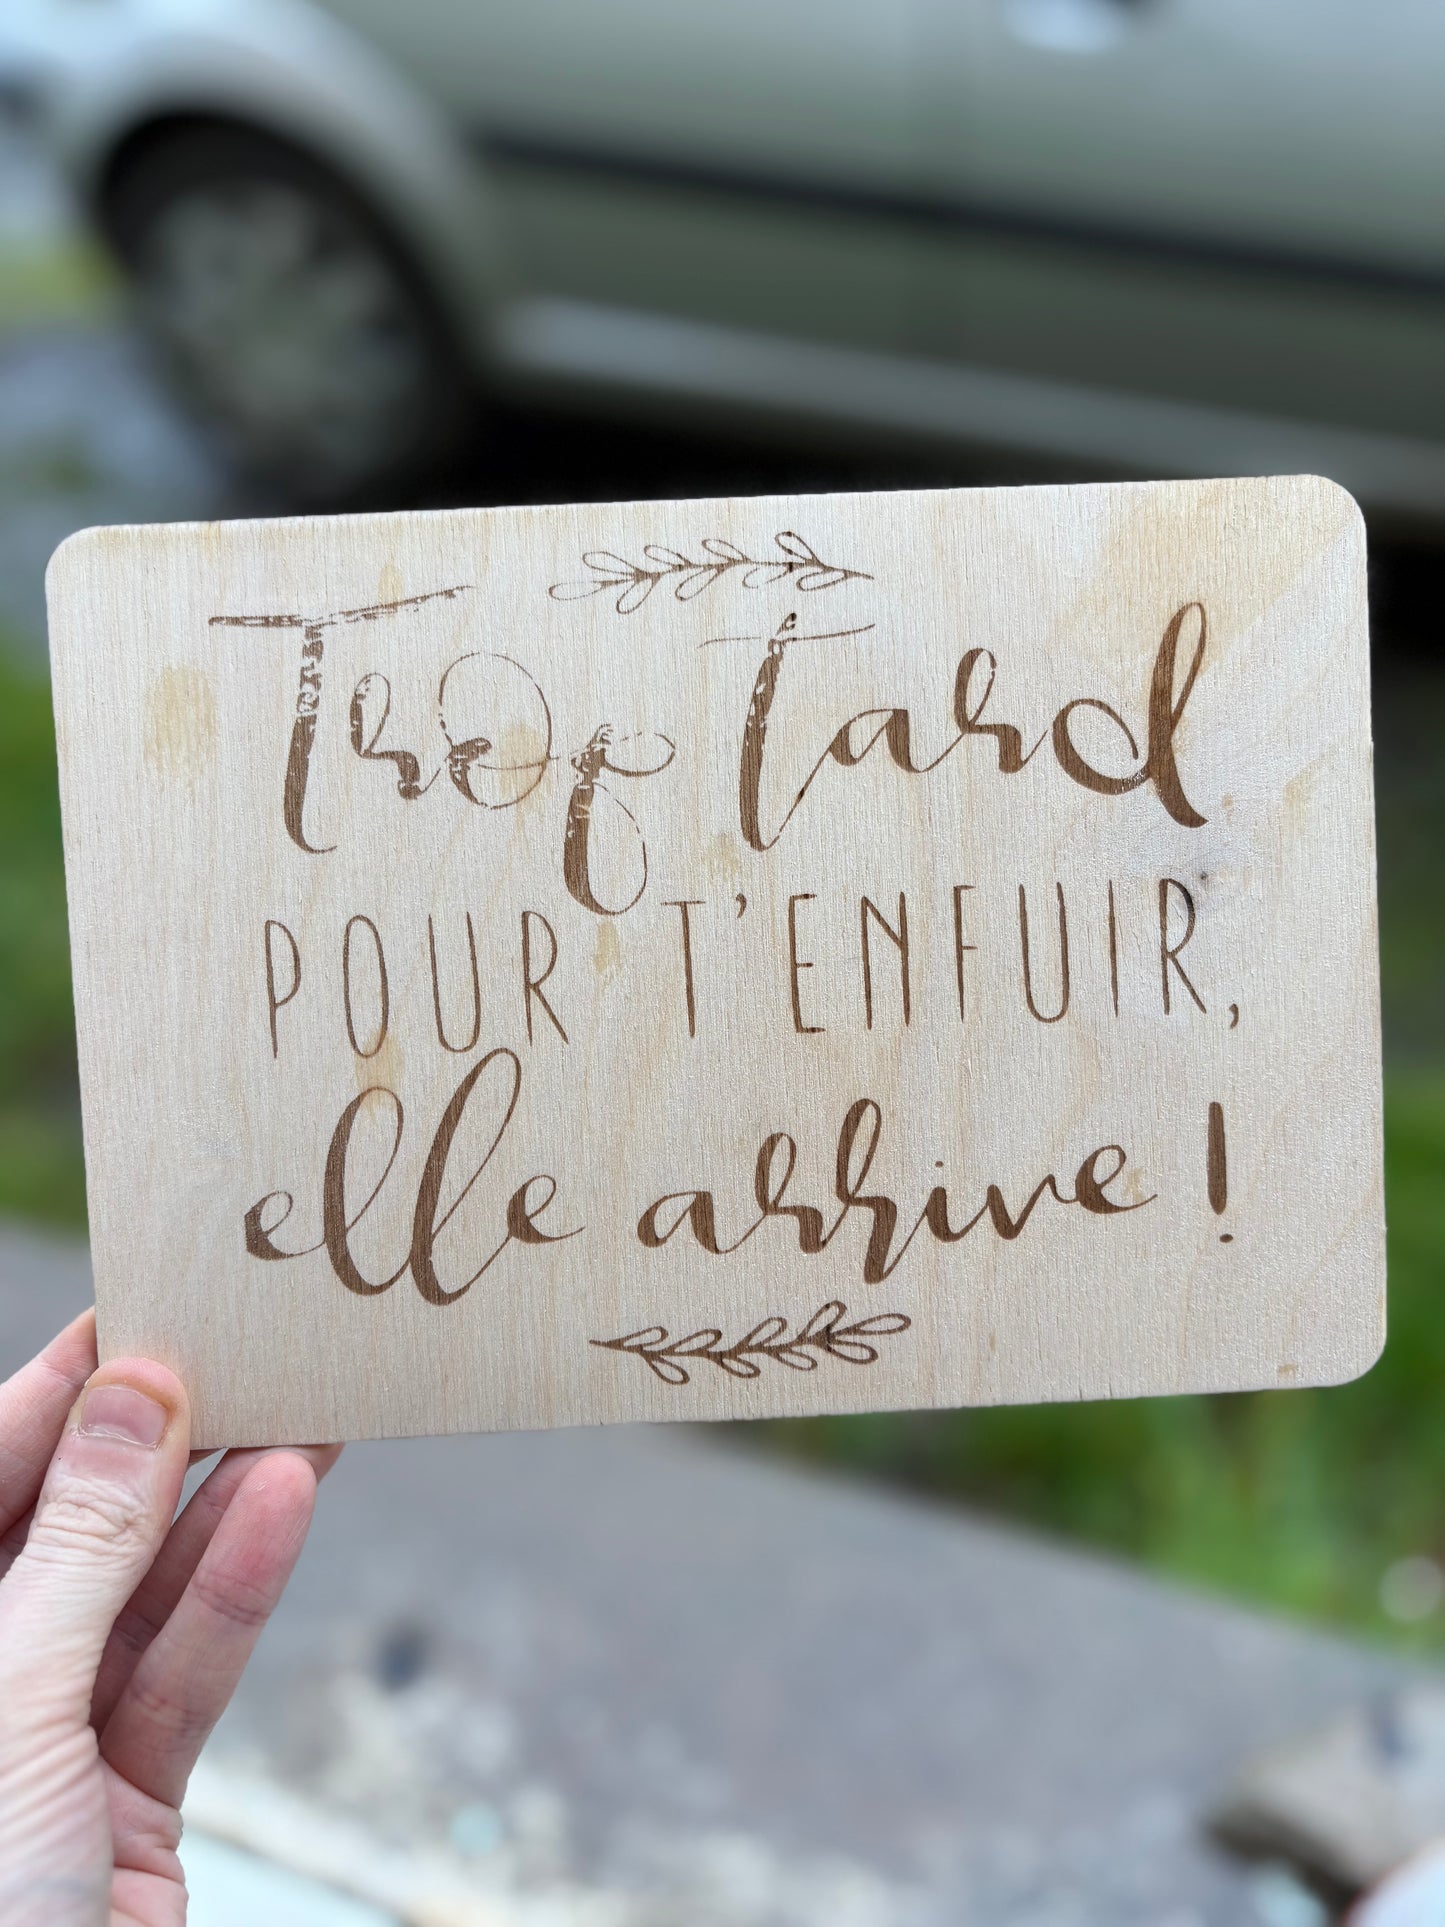 Trop Tard
POUR T'ENFUIR,
elle arrive !